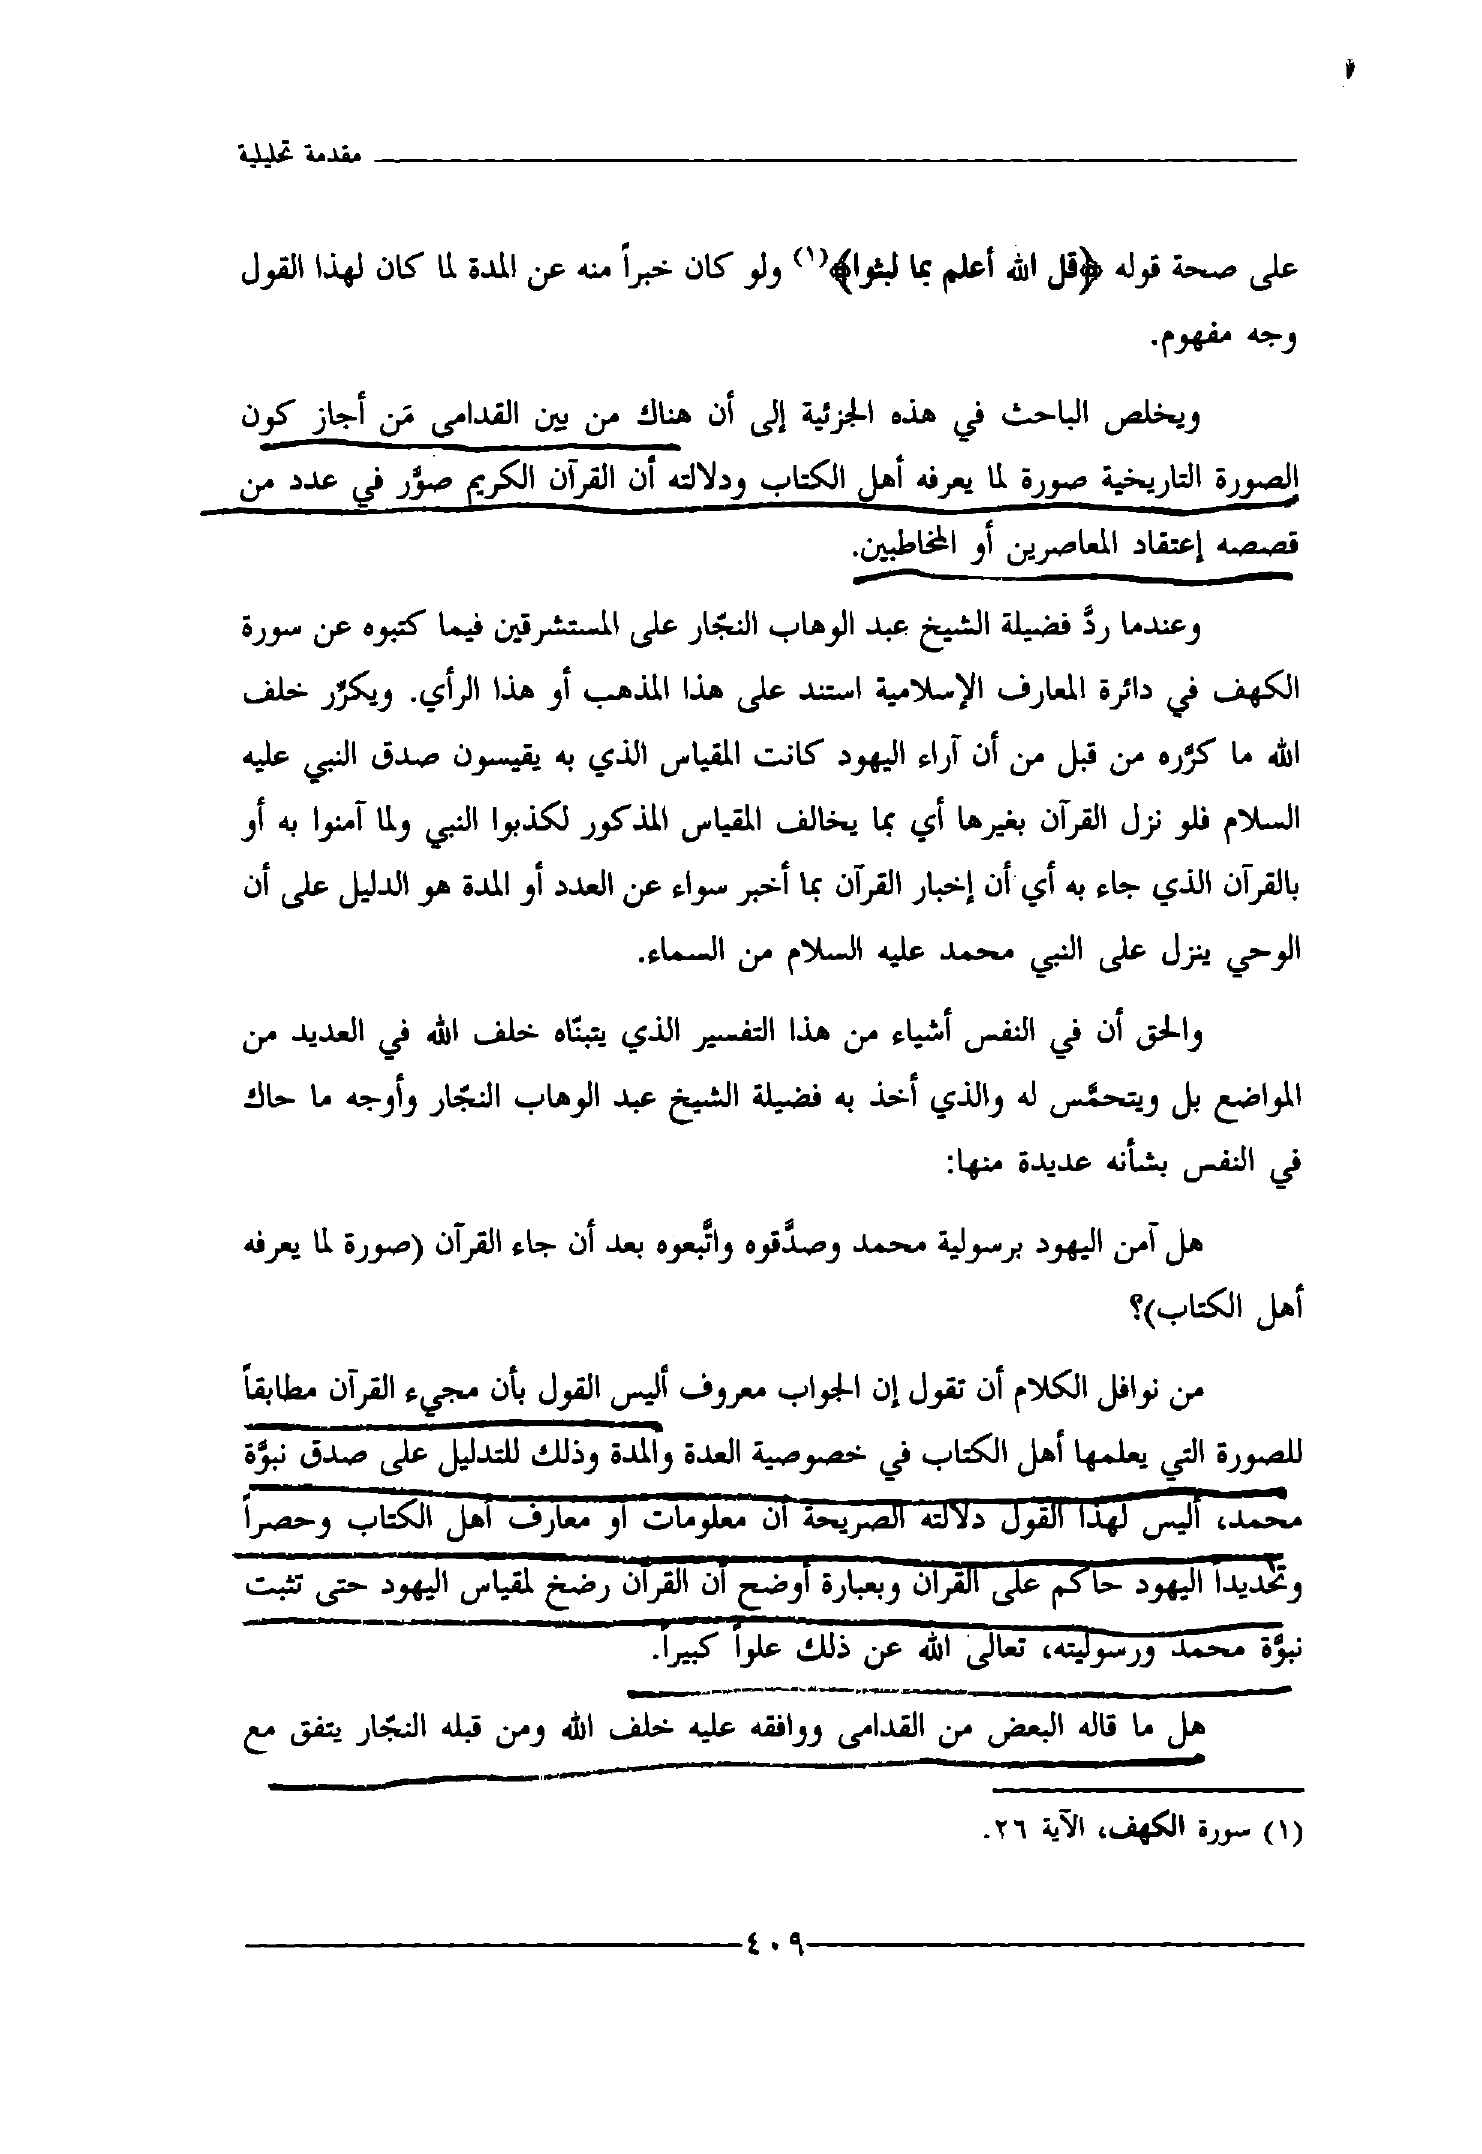 مقدمة تحليلية
على صحة قوله ﴿قل الله أعلم بما لبثوا﴾(١) ولو كان خبراً منه عن المدة لما كان لهذا القول
وجه مفهوم.
ويخلص الباحث في هذه الجزئية إلى أن هناك من بين القدامى مَن أجاز كون
الصورة التاريخية صورة لما يعرفه أهل الكتاب ودلالته أن القرآن الكريم صوَّر في عدد من
قصصه إعتقاد المعاصرين أو المخاطبين.
وعندما ردَّ فضيلة الشيخ عبد الوهاب النجّار على المستشرقين فيما كتبوه عن سورة
الكهف في دائرة المعارف الإسلامية استند على هذا المذهب أو هذا الرأي. ويكرّر خلف
الله ما كرَّره من قبل من أن آراء اليهود كانت المقياس الذي به يقيسون صدق النبي عليه
السلام فلو نزل القرآن بغيرها أي بما يخالف المقياس المذكور لكذبوا النبي ولما آمنوا به أو
بالقرآن الذي جاء به أي أن إخبار القرآن بما أخبر سواء عن العدد أو المدة هو الدليل على أن
الوحي ينزل على النبي محمد عليه السلام من السماء.
والحق أن في النفس أشياء من هذا التفسير الذي يتبنّاه خلف الله في العديد من
المواضع بل ويتحمَّس له والذي أخذ به فضيلة الشيخ عبد الوهاب النجّار وأوجه ما حاك
في النفس بشأنه عديدة منها:
هل آمن اليهود برسولية محمد وصدَّقوه واتَّبعوه بعد أن جاء القرآن (صورة لما يعرفه
أهل الكتاب)؟
من نوافل الكلام أن تقول إن الجواب معروف أليس القول بأن مجيء القرآن مطابقاً
للصورة التي يعلمها أهل الكتاب في خصوصية العدة والمدة وذلك للتدليل على صدق نبوَّة
محمد، أليس لهذا القول دلالته الصريحة أن معلومات أو معارف أهل الكتاب وحصراً
وتحديداً اليهود حاكم على القرآن وبعبارة أوضح أن القرآن رضخ لمقياس اليهود حتى تثبت
نبوَّة محمد ورسوليته، تعالى الله عن ذلك علواً كبيراً.
هل ما قاله البعض من القدامى ووافقه عليه خلف الله ومن قبله النجّار يتفق مع
(١) سورة الكهف، الآية ٢٦.
٤٠٩